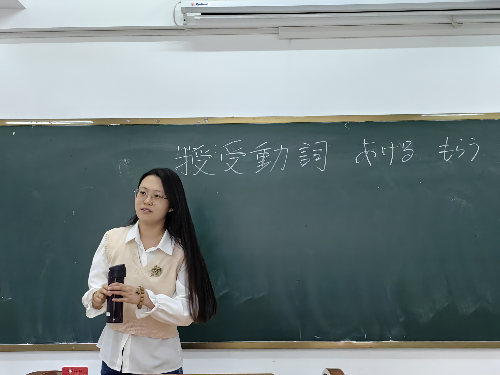 授受動詞 あげる もらう